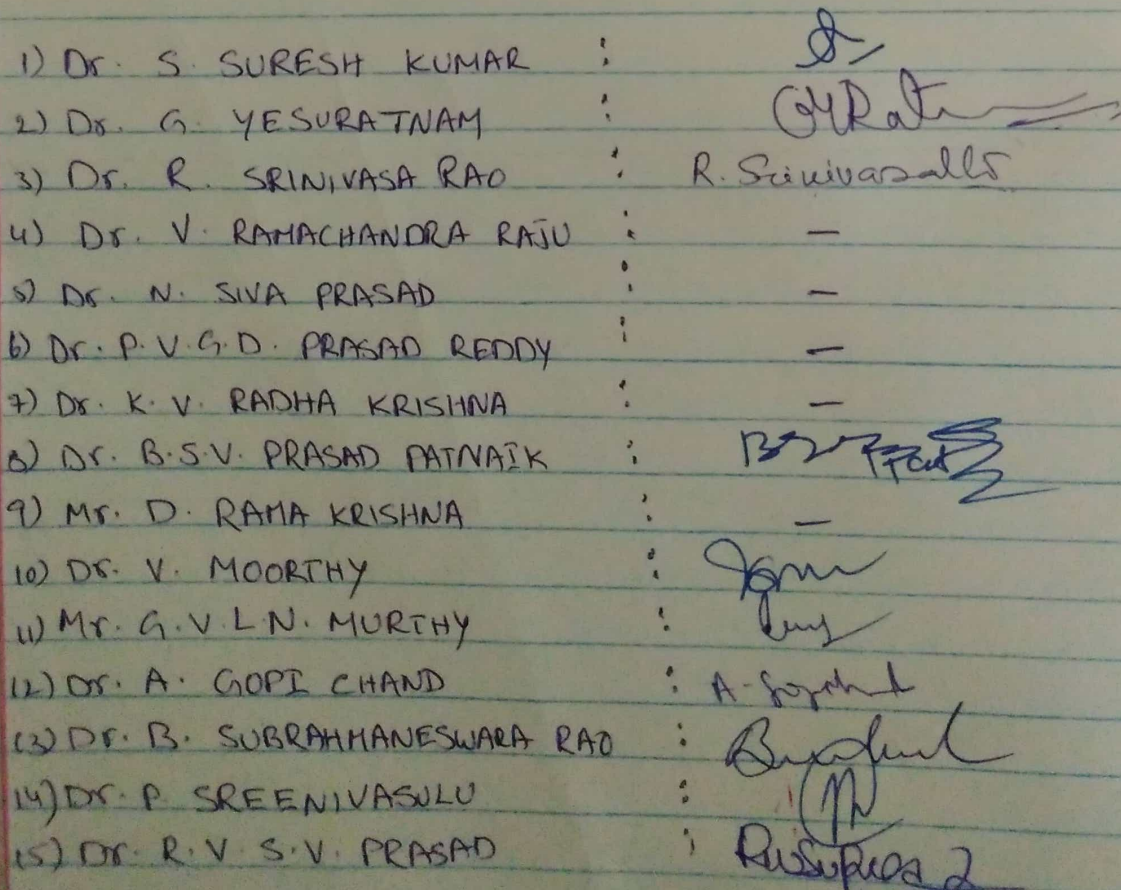 1) Dr. S. SURESH KUMAR :
2) Dr. G. YESURATNAM :
3) Dr. R. SRINIVASA RAO : R. Srinivasa Rao
4) Dr. V. RAMACHANDRA RAJU : —
5) Dr. N. SIVA PRASAD : —
6) Dr. P. V. G. D. PRASAD REDDY : —
7) Dr. K. V. RADHA KRISHNA : —
8) Dr. B.S.V. PRASAD PATNAIK :
9) Mr. D. RAMA KRISHNA : —
10) Dr. V. MOORTHY :
11) Mr. G. V. L. N. MURTHY :
12) Dr. A. GOPI CHAND :
13) Dr. B. SUBRAHMANESWARA RAO :
14) Dr. P. SREENIVASULU :
15) Dr. R. V. S. V. PRASAD :